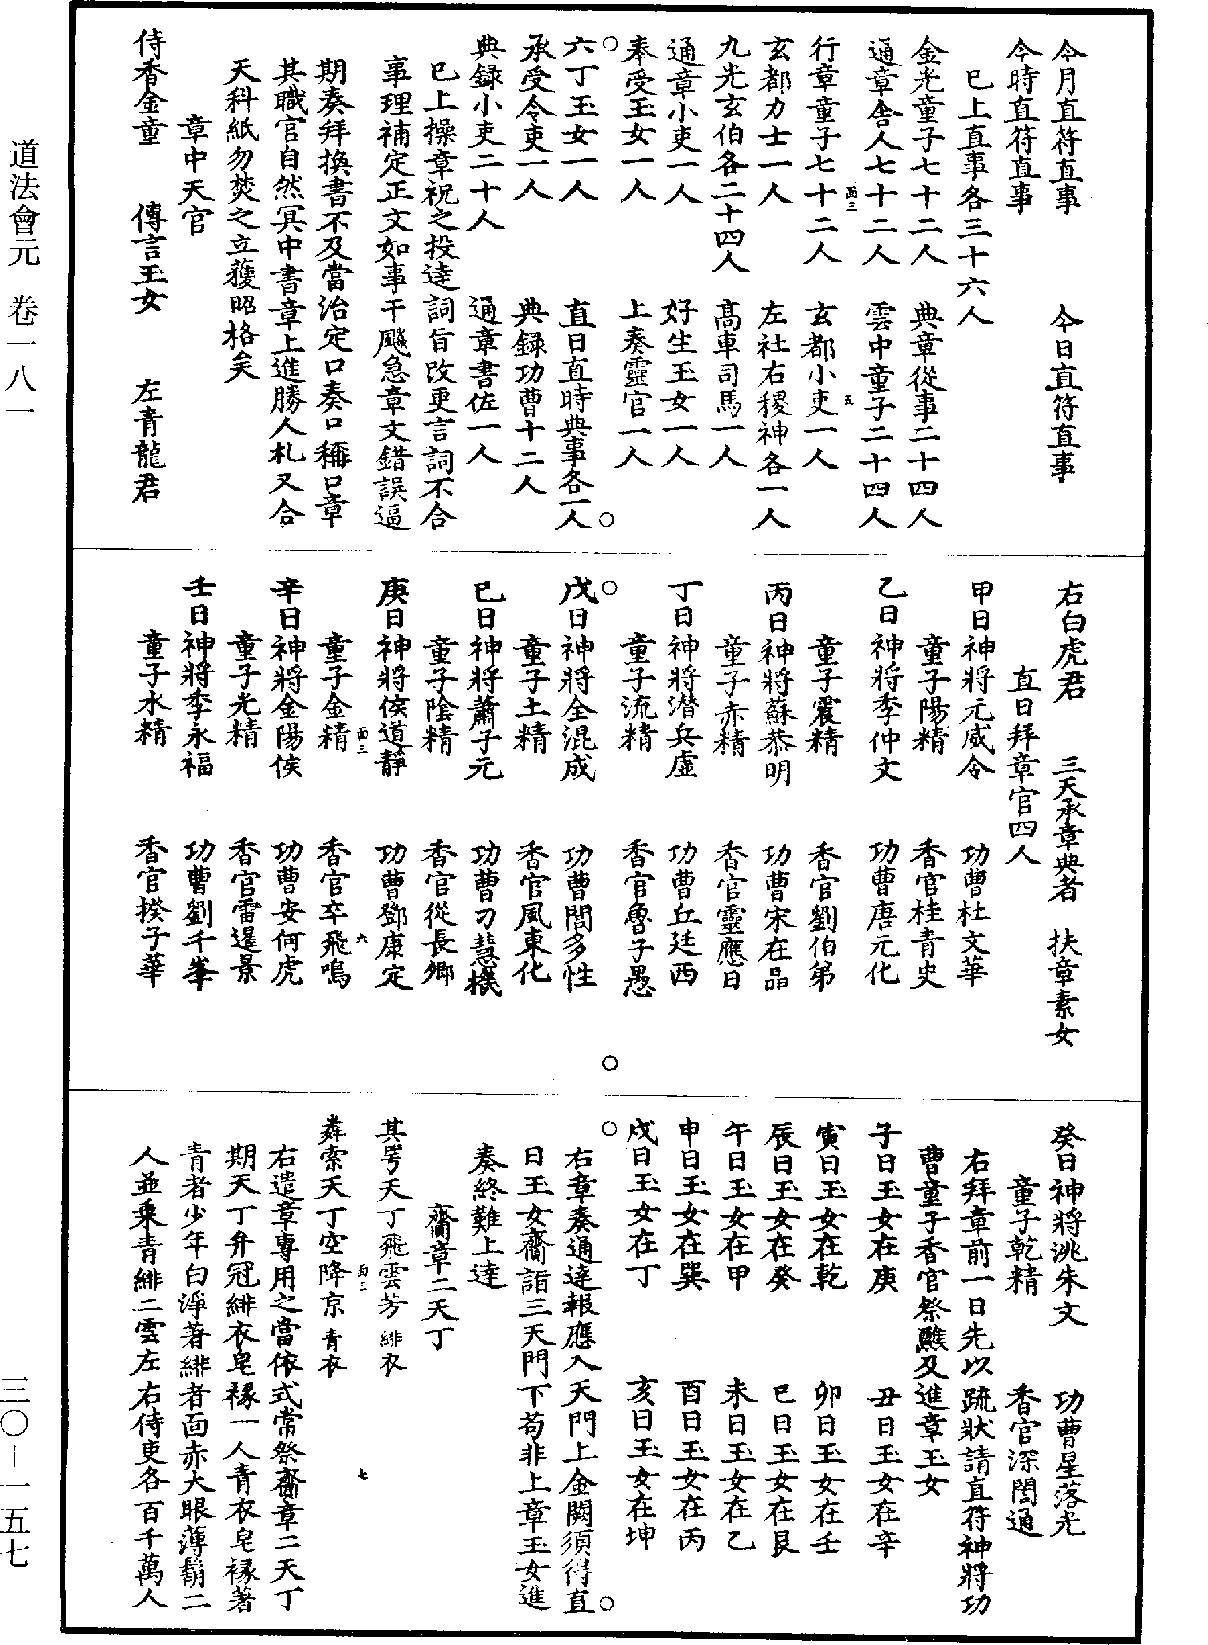 道法會元　卷一八一
三〇—一五七
今月直符直事　今日直符直事
今時直符直事
已上直事各三十六人
金光童子七十二人　典章從事二十四人
通章舍人七十二人　雲中童子二十四人
行章童子七十二人　玄都小吏一人
玄都力士一人　左社右稷神各一人
九光玄伯各二十四人　高車司馬一人
通章小吏一人　好生玉女一人
奉受玉女一人　上奏靈官一人
六丁玉女一人　直日直時典事各一人
承受令吏一人　典錄功曹十二人
典錄小吏二十人　通章書佐一人
已上操章祝之投達詞旨改更言詞不合
事理補定正文如事干飈急章文錯誤逼
期奏拜換書不及當治定口奏口稱口章
其職官自然冥中書章上進勝人札又合
天科紙勿焚之立獲昭格矣
章中天官
侍香金童　傳言玉女　左青龍君
右白虎君　三天承章典者　扶章素女
直日拜章官四人
甲日神將元威令　功曹杜文華
童子陽精　香官桂青史
乙日神將季仲文　功曹唐元化
童子震精　香官劉伯弟
丙日神將蘇恭明　功曹宋在品
童子赤精　香官靈應日
丁日神將潛兵虛　功曹丘廷西
童子流精　香官魯子愚
戊日神將全混成　功曹閻多性
童子土精　香官風東化
巳日神將蕭子元　功曹刀慧機
童子陰精　香官從長鄉
庚日神將侯道靜　功曹鄧康定
童子金精　香官卒飛鳴
辛日神將金陽侯　功曹安何虎
童子光精　香官雷暹景
壬日神將季永福　功曹劉千峯
童子水精　香官揆子華
癸日神將洮朱文　功曹星落光
童子乾精　香官深閏通
右拜章前一日先以疏狀請直符神將功
曹童子香官祭醮及進章玉女
子日玉女在庚　丑日玉女在辛
寅日玉女在乾　卯日玉女在壬
辰日玉女在癸　巳日玉女在艮
午日玉女在甲　未日玉女在乙
申日玉女在巽　酉日玉女在丙
戌日玉女在丁　亥日玉女在坤
右章奏通達報應入天門上金闕須得直
日玉女齎詣三天門下苟非上章玉女進
奏終難上達
齎章二天丁
其咢天丁飛雲芳緋衣
犇索天丁空降京青衣
右遣章專用之當依式常祭齎章二天丁
期天丁弁冠緋衣皂襐一人青衣皂襐著
青者少年白淨著緋者面赤大眼薄鬍二
人並乘青緋二雲左右侍吏各百千萬人